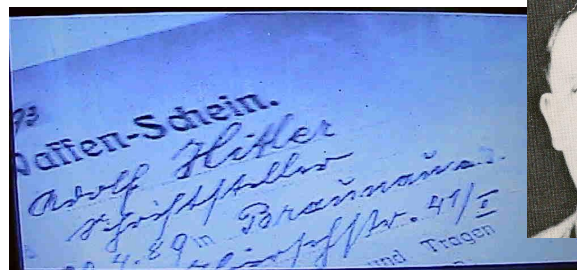 Waffen-Schein.
Adolf Hitler
Schriftsteller
20.4.89 in Braunau a. I.
41/I
und Tragen